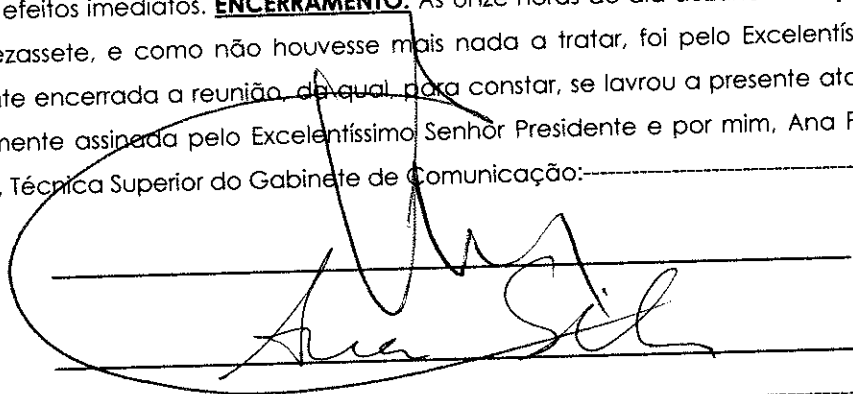 efeitos imediatos. ENCERRAMENTO:
ezassete, e como não houvesse mais nada a tratar, foi pelo Excelentís
te encerrada a reunião, da qual, para constar, se lavrou a presente ata
mente assinada pelo Excelentíssimo Senhor Presidente e por mim, Ana F
, Técnica Superior do Gabinete de Comunicação:------------------------------
Ana Silva